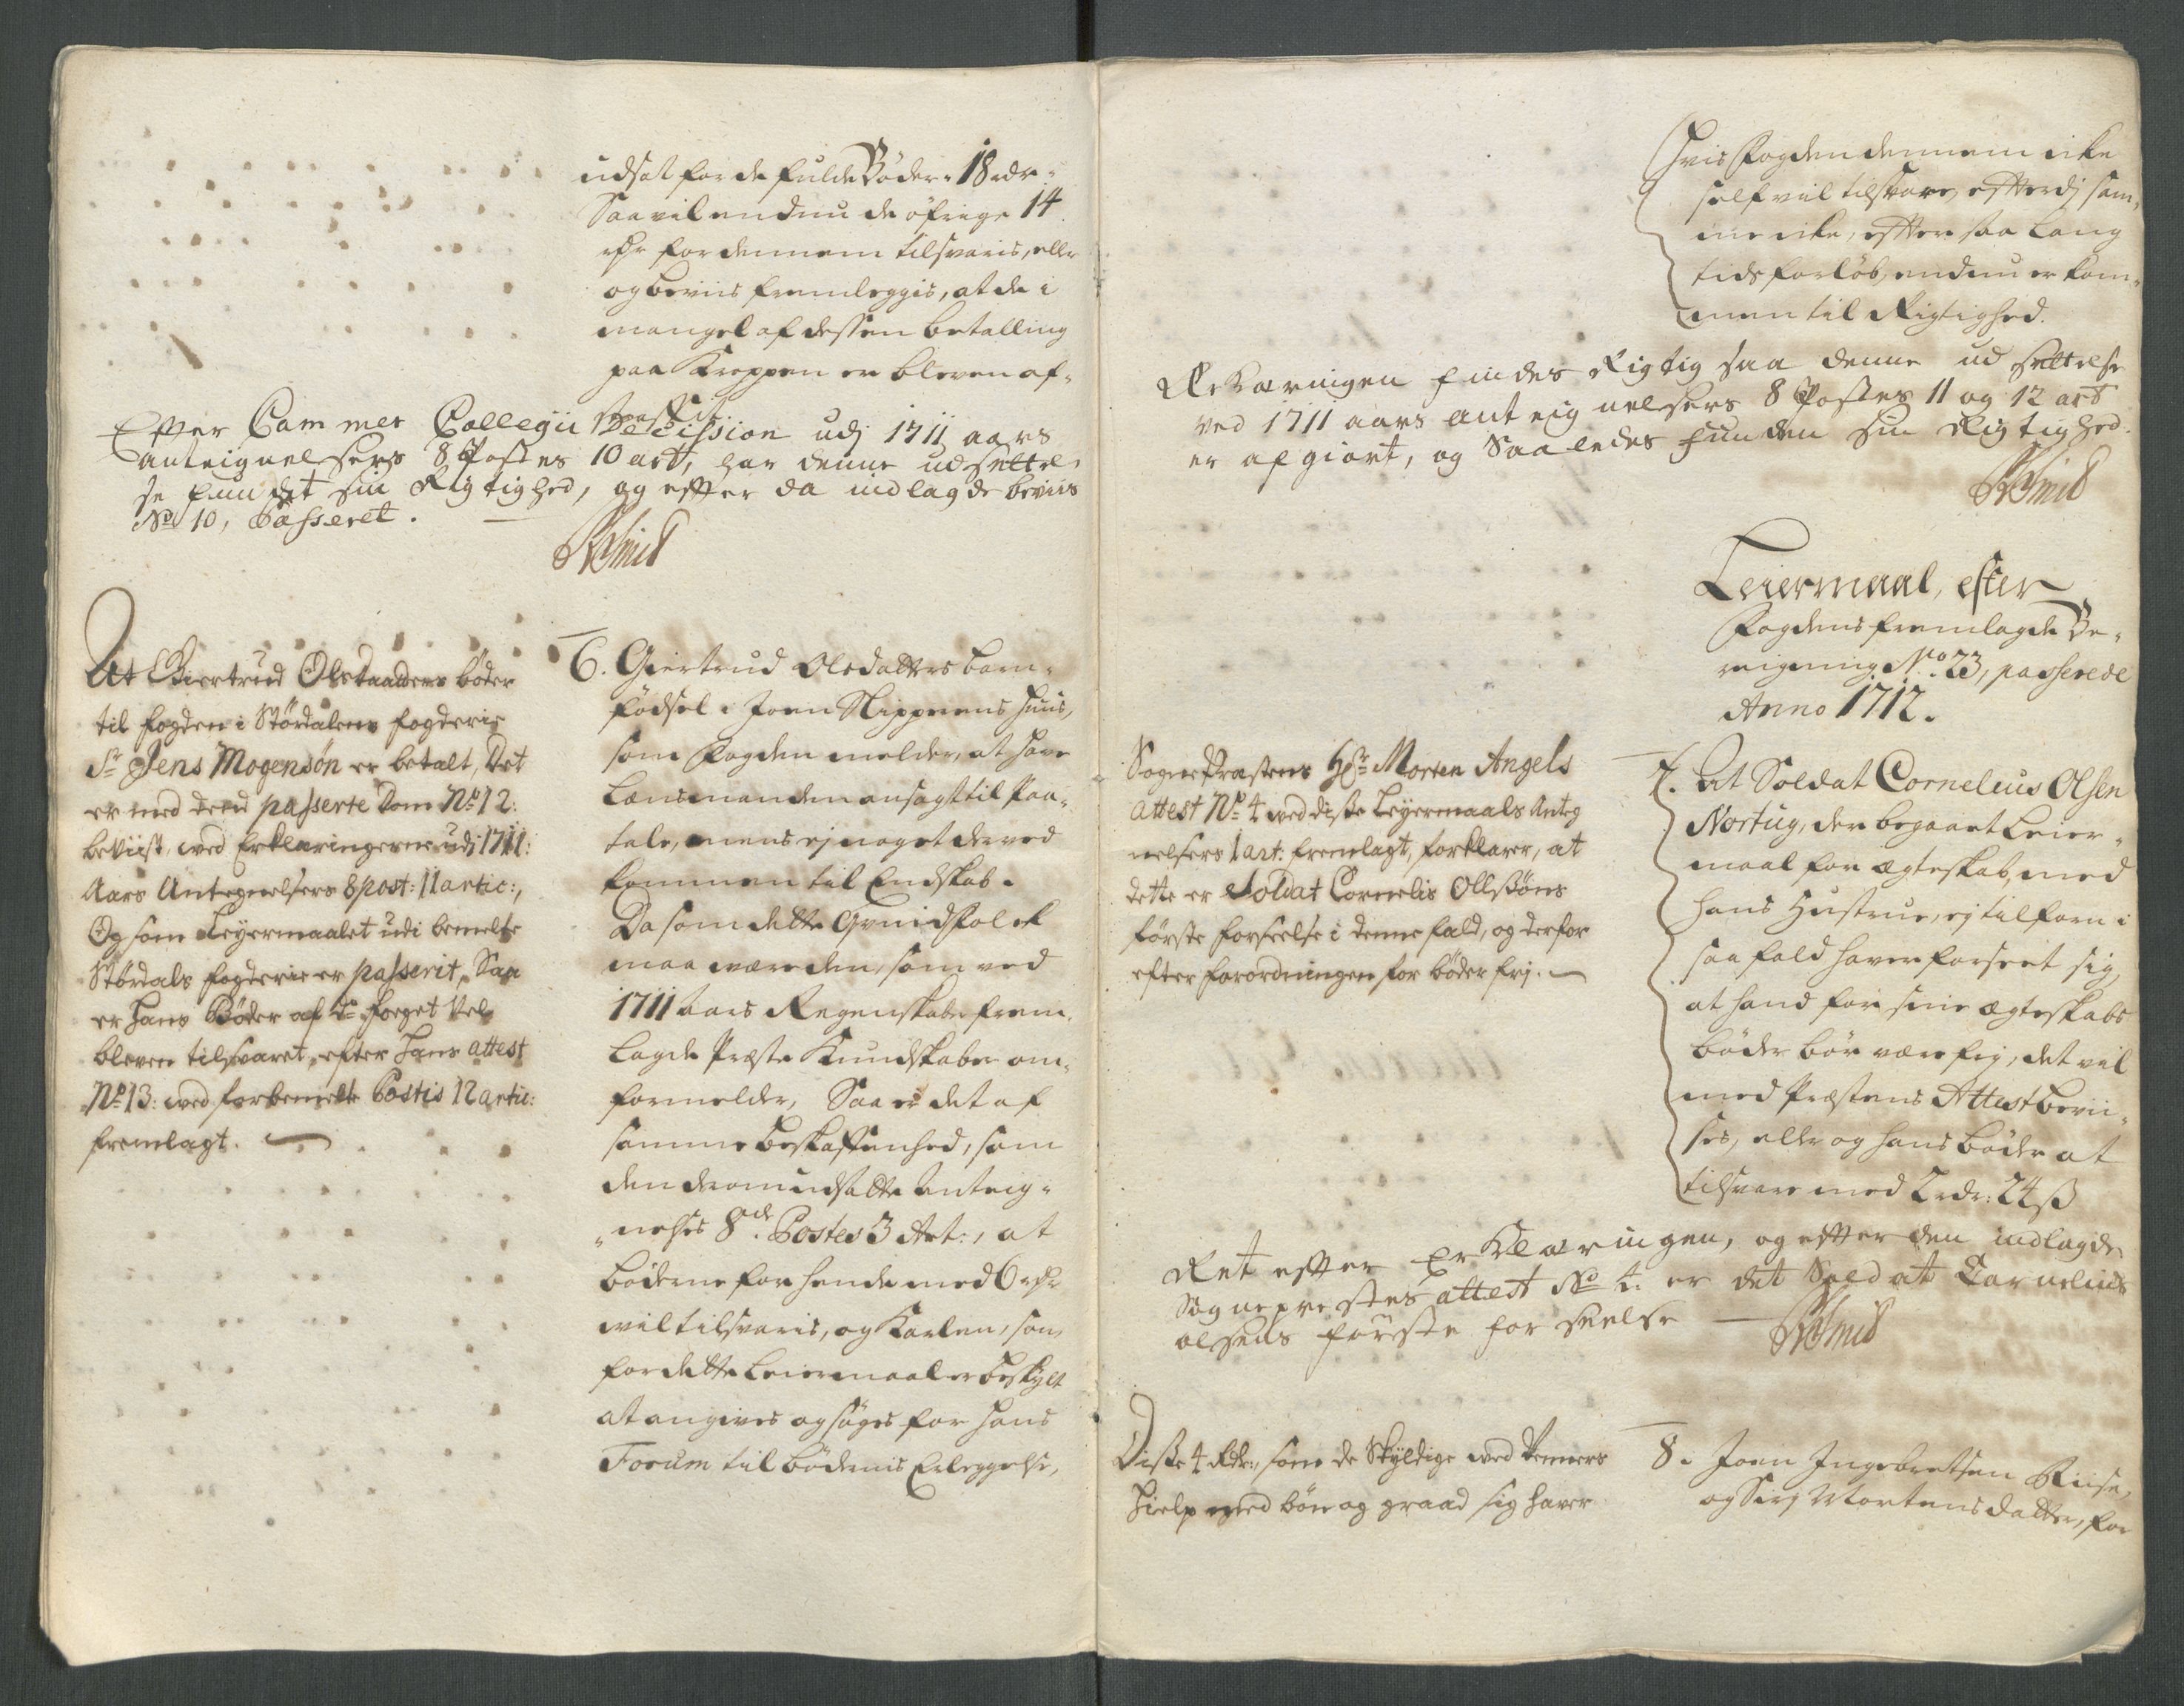 udsat for de fulde Bøder. 18 rdr.
Saa vil endnu de øfrige 14
rdr for dennem tilsvaris, eller
og beviis fremleggis, at de i
mangel af dessen betalling
paa Kroppen er bleven af-
straffit
Efter Cammer Collegii Decission udj 1711 aars
anteignelsers 8 Postes 10 art, har denne udsettel-
se fundet sin Rigtighed, og effter da indlagde beviis
No 10, Passeret.
At Giertrud Olsdaatters bøder
til fogden i Størdalens fogderie
Sr Jens Mogensøn er betalt, Det
er med dend passerte Dom No 12:
beviist, wed Erklæringerne udj 1711:
Aars Antegnelsers 8 post: 11 artic:,
Og som Leyermaalet udi bemelte
Størdals fogderie er passerit, Saa
er hans Bøder af do foeget Vel
bleven tilsvaret, efter hans attest
No 13: wed forbemelte Postis 12 artic:
fremlagt.
6. Giertrud Olsdatters barn-
fødsel i Joen Klippenens huus,
som Fogden melder, at have
Lænsmanden ansagt til Paa-
tale, mens ej noget derved
kommen til Endskab.
Da som dette Qvindfolck
maa være den, som ved
1711 aars Regenskabs frem-
lagde Præste Kundskaber om-
formelder, Saa er det af
samme beskaffenhed, som
den derom udsatte Anteig-
nelses 8de Postes 3 Art:, at
bøderne for hende med 6 rdr
vil tilsvaris, og Karlen, som
for dette Leiermaal er beskylt
at angives og søges for hans
Forum til bødernis Erleggelse,
Hvis Fogden dennem icke
self vil tilsvare, efterdj sam-
me icke, effter saa lang
tids forløb, endnu er kom-
men til Rigtighed.
Erklæringen findes Rigtig saa denne udsettelse
ved 1711 aars anteignelsers 8 Postes 11 og 12 art
er afgiort, og Saaledes funden sin Rigtighed.
Leiermaal, efter
Fogdens fremlagde Be-
reigning No. 23, passerede
Anno 1712.
Sogne Præstens Hr Morten Angels
attest No 4 wed disse Leyermaals Anteg
nelsers 1 art: fremlagt, forklarer, at
dette er Soldat Cornelis Ollssøns
første forseelse i denne fald, og derfor
efter forordningen for bøder frj.
7. At Soldat Cornelius Olsen
Nortug, der begaaet Leier-
maal for ægteskab, med
hans Hustrue, ej tilforn i
saa fald haver forseet sig,
at hand for sine ægteskabs
bøder bør være frj, det vil
med Præstens Attest bevii-
ses, eller og hans bøder at
tilsvare med 2 rdr: 24 ß
Ret effter Erklæringen, og effter den indlagde
Sognepræstes attest No 4. er det Soldat Cornelius
olsens første forseelse
Disse 4 Rdr:, som de Skyldige wed Venners
Hielp med bøn og graad sig haver
8. Joen Ingebretsen Riise,
og Sirj Mortensdatter, for